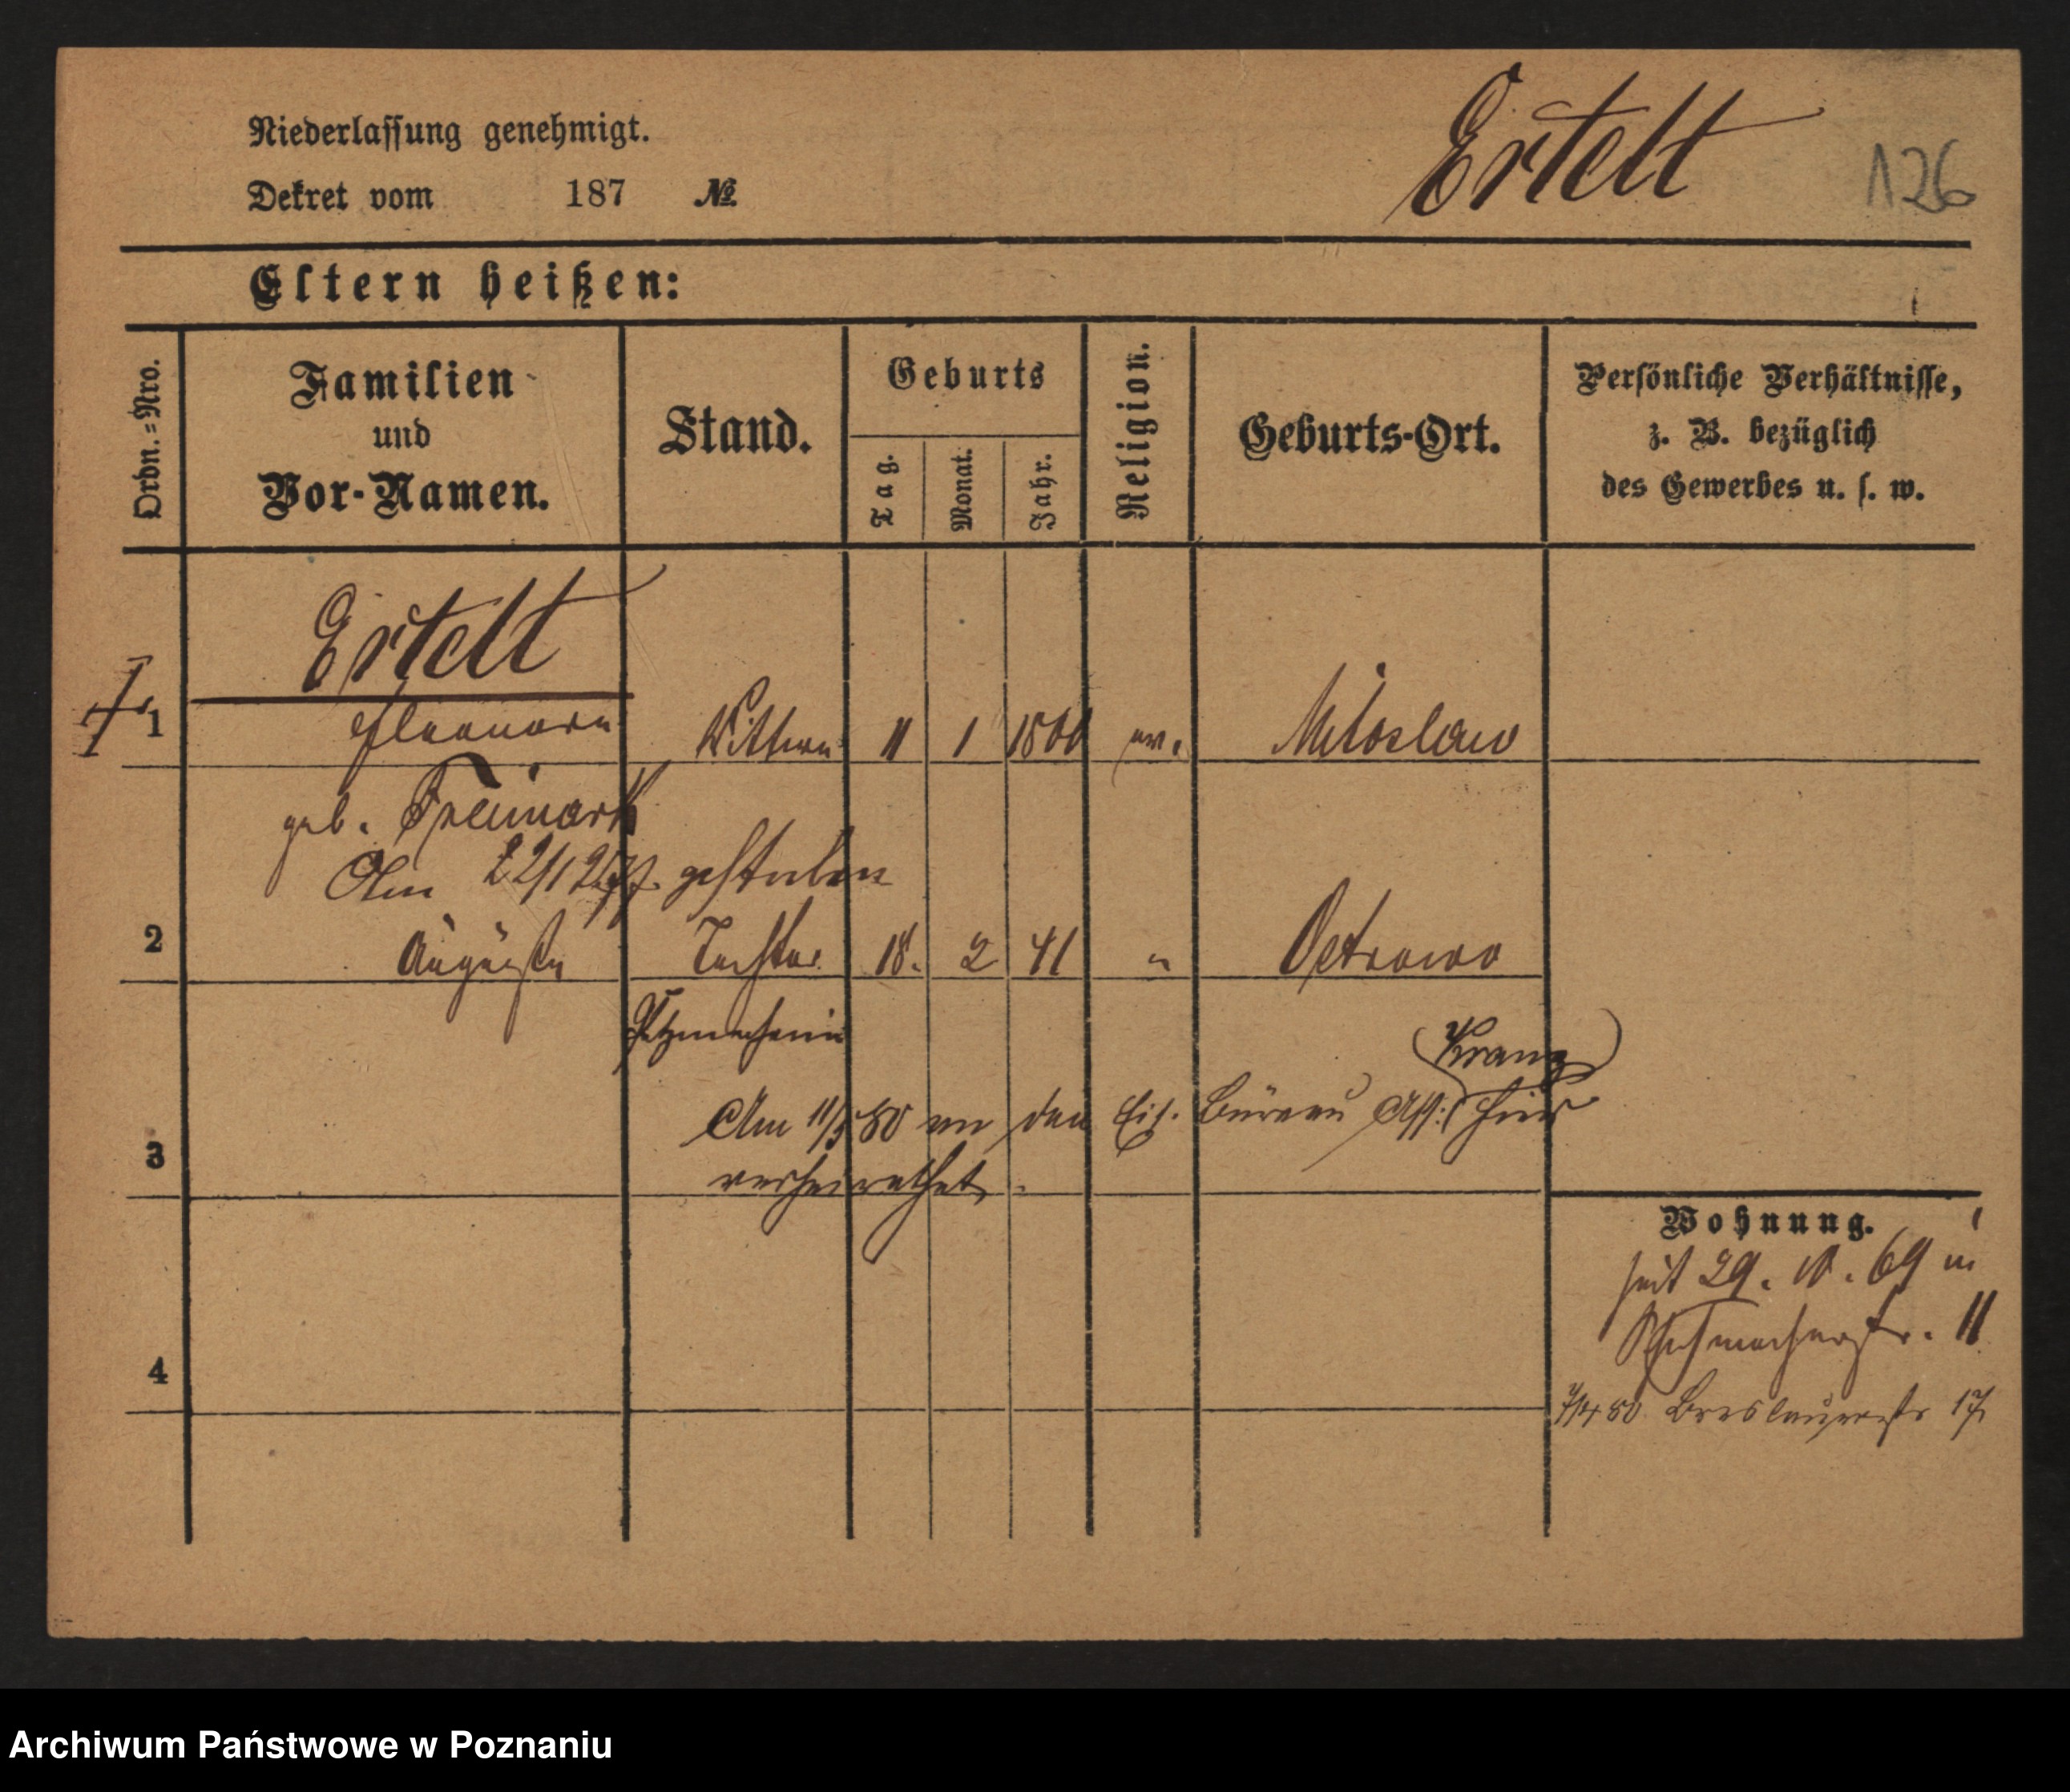 Niederlassung genehmigt.
Dekret vom 187 №
Ertelt
126
Eltern heißen:
Ordn.=Nro.
Familien
und
Vor-Namen.
Stand.
Geburts
Tag.
Monat.
Jahr.
Religion.
Geburts-Ort.
Persönliche Verhältnisse,
z. B. bezüglich
des Gewerbes u. s. w.
Ertelt
1 Eleonore Wittwe 11 1 1800 ev. Miloslaw
geb. Freimark
Am gestorben
2 Auguste Tochter 18. 2 41 " Ostrowo
Putzmacherin
(Kranz)
Am 11/5 80 an den Eis. Büreau Ass: hier
3 verheirathet.
Wohnung.
seit 29. 69 in
Schuhmacherstr. 11
4
80 Breslauerstr 17
Archiwum Państwowe w Poznaniu